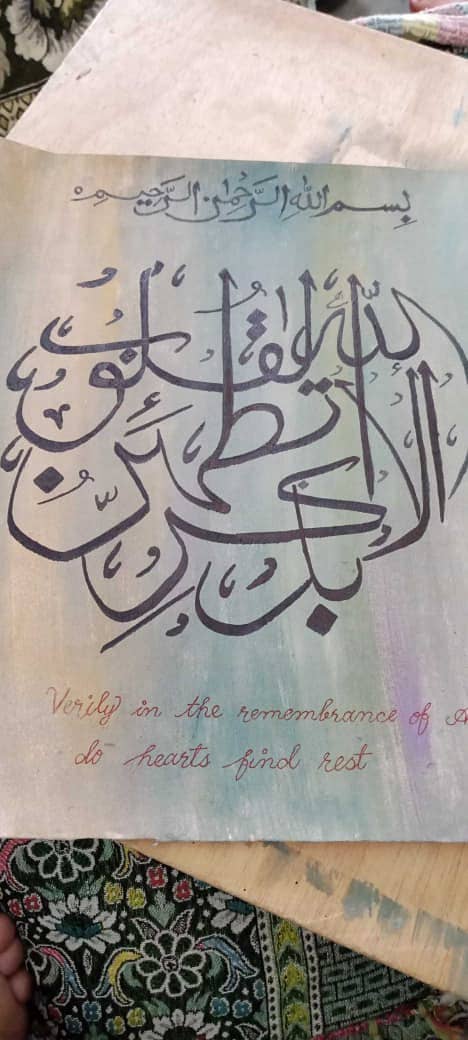 بِسمِ اللهِ الرَّحْمٰنِ الرَّحِيمِ
الا بذكر الله تطمئن القلوب
Verily in the remembrance of
do hearts find rest